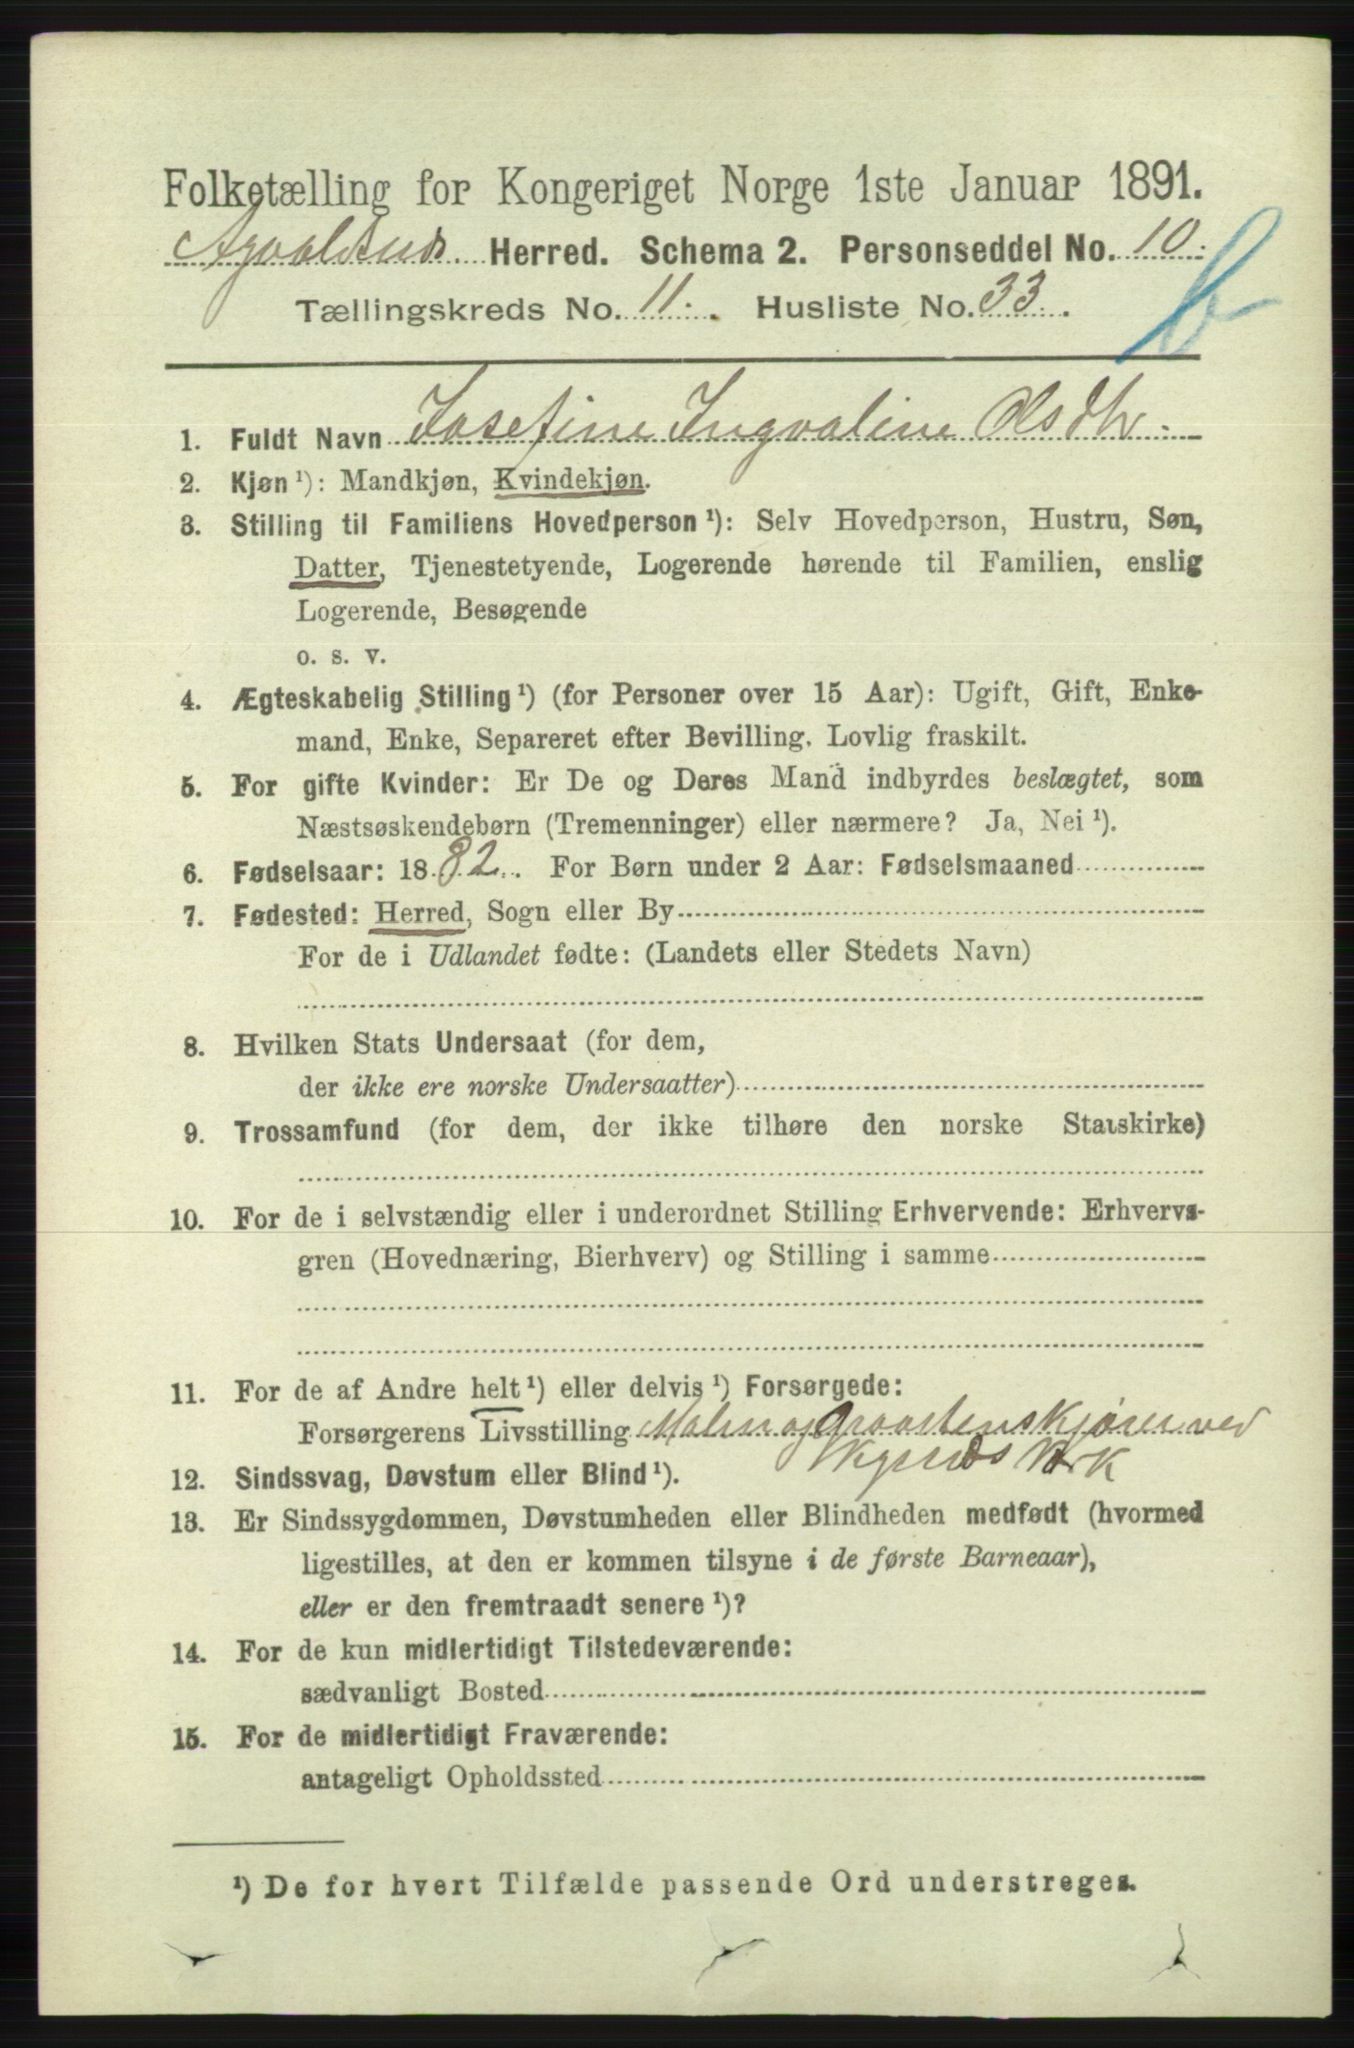 Folketælling for Kongeriget Norge 1ste Januar 1891.
Herred. Schema 2. Personseddel No. 10.
Tællingskreds No. 11. Husliste No. 33.
b
1. Fuldt Navn Josefine Ingvaline Olsdtr.
2. Kjøn ¹): Mandkjøn, Kvindekjøn.
3. Stilling til Familiens Hovedperson ¹): Selv Hovedperson, Hustru, Søn,
Datter, Tjenestetyende, Logerende hørende til Familien, enslig
Logerende, Besøgende
o. s. v.
4. Ægteskabelig Stilling ¹) (for Personer over 15 Aar): Ugift, Gift, Enke-
mand, Enke, Separeret efter Bevilling. Lovlig fraskilt.
5. For gifte Kvinder: Er De og Deres Mand indbyrdes beslægtet, som
Næstsøskendebørn (Tremenninger) eller nærmere? Ja, Nei ¹).
6. Fødselsaar: 1882. For Børn under 2 Aar: Fødselsmaaned
7. Fødested: Herred, Sogn eller By
For de i Udlandet fødte: (Landets eller Stedets Navn)
8. Hvilken Stats Undersaat (for dem,
der ikke ere norske Undersaatter)
9. Trossamfund (for dem, der ikke tilhøre den norske Statskirke)
10. For de i selvstændig eller i underordnet Stilling Erhvervende: Erhvervs-
gren (Hovednæring, Bierhverv) og Stilling i samme
11. For de af Andre helt ¹) eller delvis ¹) Forsørgede:
Forsørgerens Livsstilling Malm og Graastenskjører ved
Værk
12. Sindssvag, Døvstum eller Blind ¹).
13. Er Sindssygdommen, Døvstumheden eller Blindheden medfødt (hvormed
ligestilles, at den er kommen tilsyne i de første Barneaar),
eller er den fremtraadt senere ¹)?
14. For de kun midlertidigt Tilstedeværende:
sædvanligt Bosted
15. For de midlertidigt Fraværende:
antageligt Opholdssted
¹) De for hvert Tilfælde passende Ord understreges.